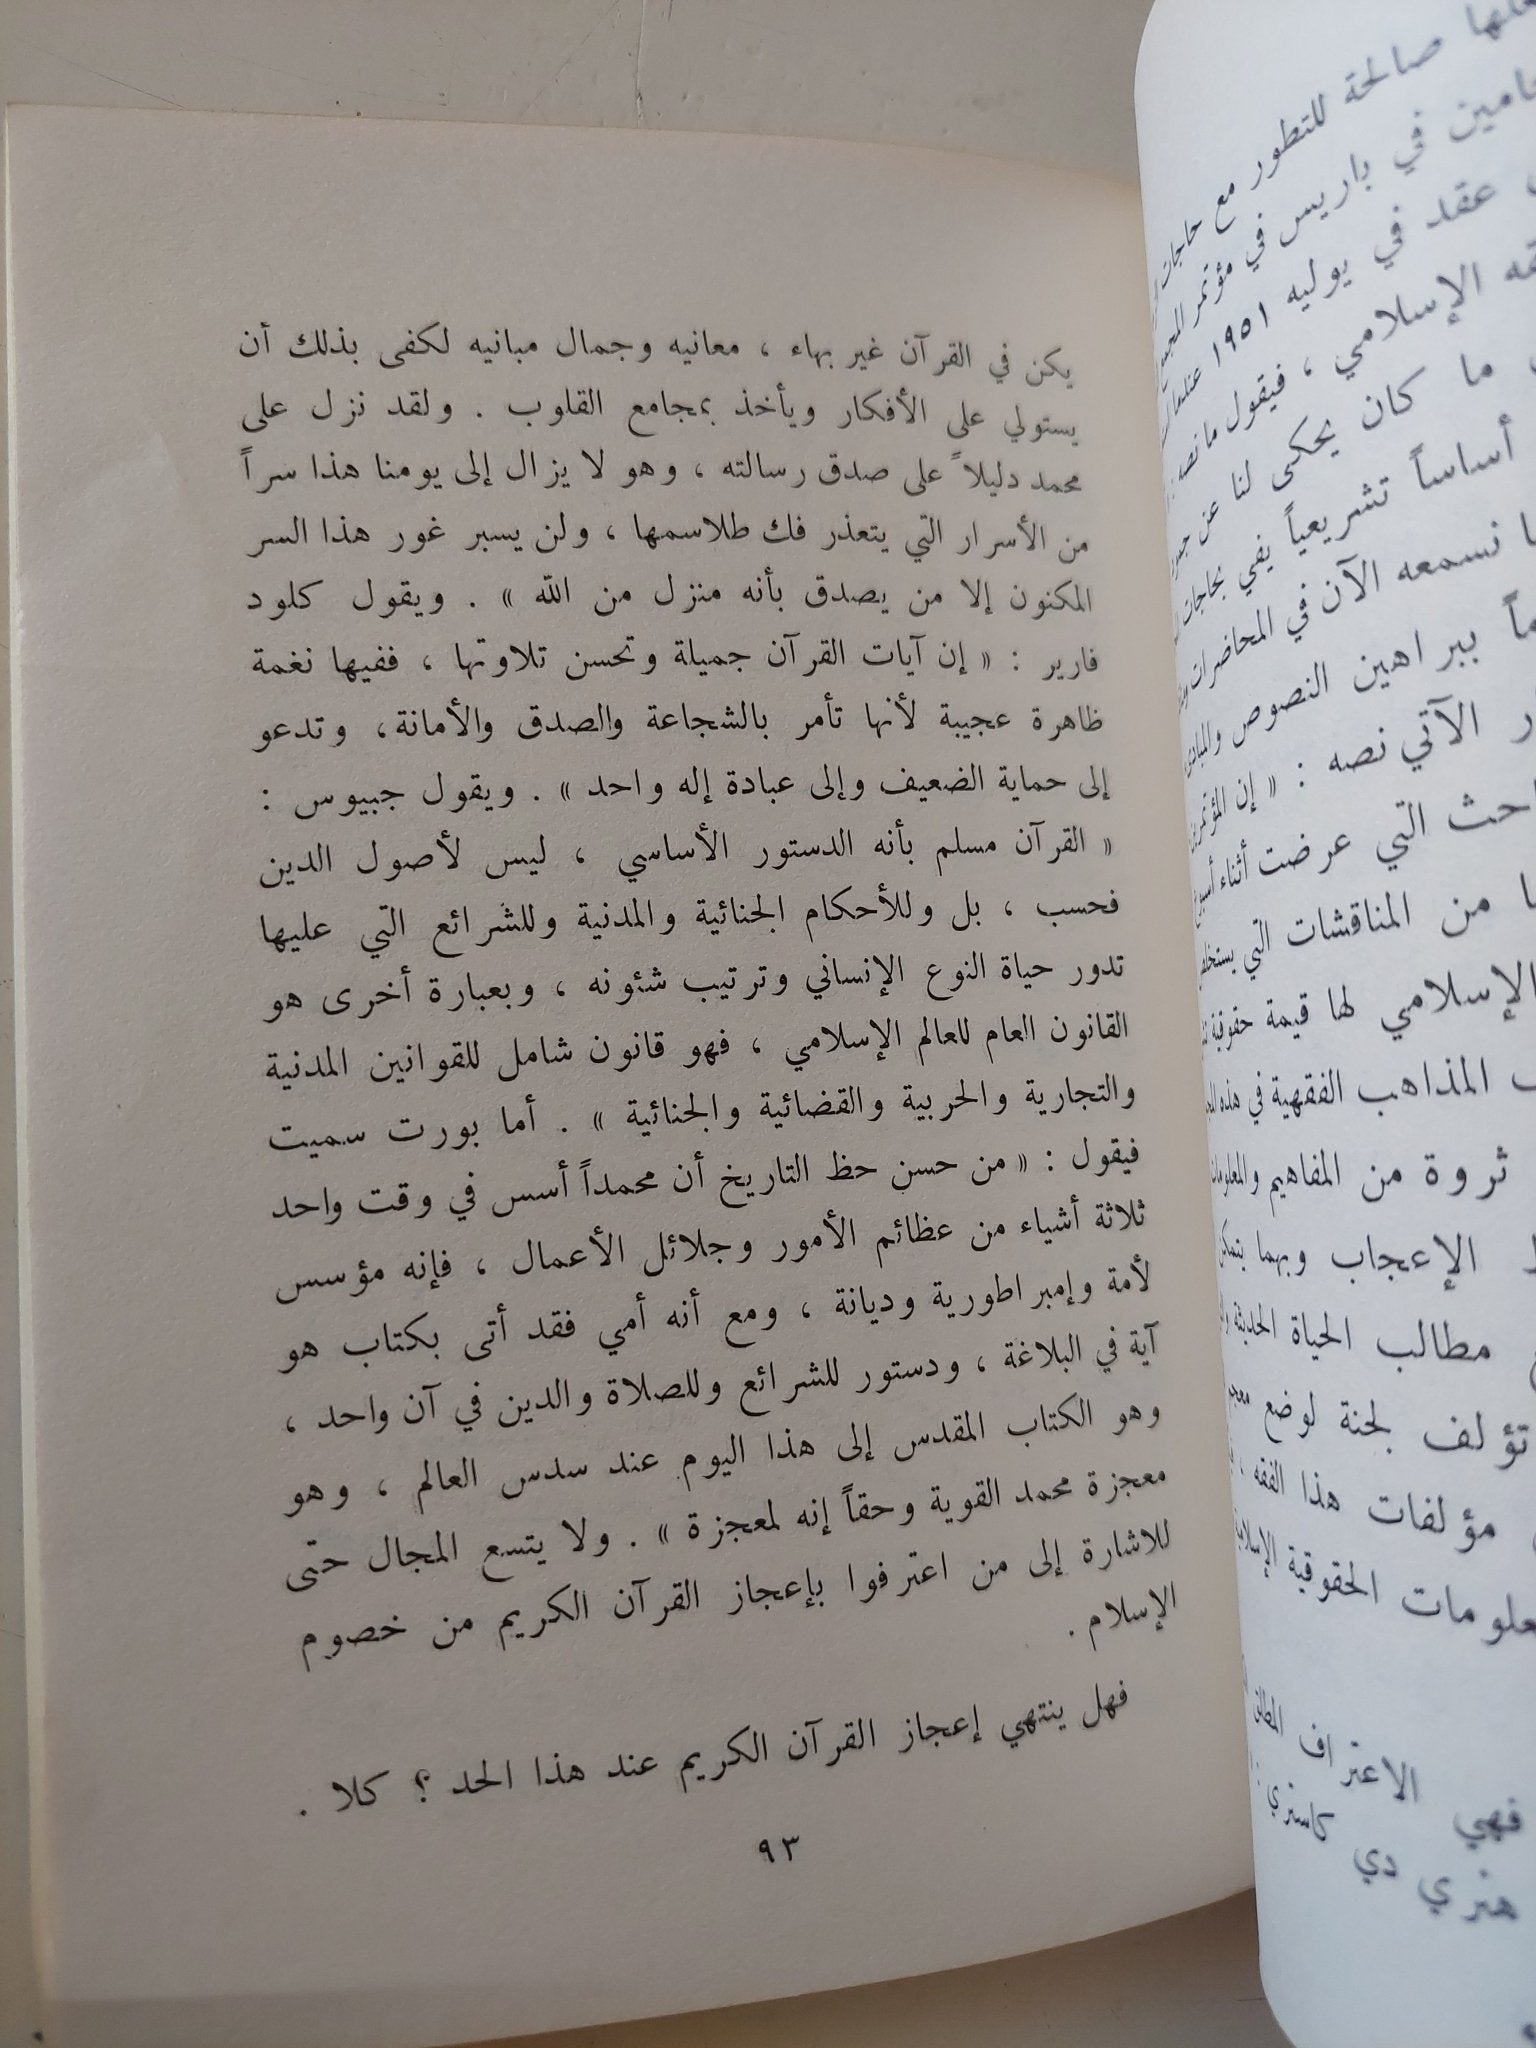 يكن في القرآن غير بهاء ، معانيه وجمال مبانيه لكفى بذلك أن
يستولي على الأفكار ويأخذ بمجامع القلوب . ولقد نزل على
محمد دليلاً على صدق رسالته ، وهو لا يزال إلى يومنا هذا سراً
من الأسرار التي يتعذر فك طلاسمها ، ولن يسبر غور هذا السر
المكنون إلا من يصدق بأنه منزل من الله » . ويقول كلود
فارير : « إن آيات القرآن جميلة وتحسن تلاوتها ، ففيها نغمة
ظاهرة عجيبة لأنها تأمر بالشجاعة والصدق والأمانة، وتدعو
إلى حماية الضعيف وإلى عبادة إله واحد » . ويقول جبيوس :
« القرآن مسلم بأنه الدستور الأساسي ، ليس لأصول الدين
فحسب ، بل وللأحكام الجنائية والمدنية وللشرائع التي عليها
تدور حياة النوع الإنساني وترتيب شئونه ، وبعبارة أخرى هو
القانون العام للعالم الإسلامي ، فهو قانون شامل للقوانين المدنية
والتجارية والحربية والقضائية والجنائية » . أما بورت سميت
فيقول : « من حسن حظ التاريخ أن محمداً أسس في وقت واحد
ثلاثة أشياء من عظائم الأمور وجلائل الأعمال ، فإنه مؤسس
لأمة وإمبراطورية وديانة ، ومع أنه أمي فقد أتى بكتاب هو
آية في البلاغة ، ودستور للشرائع وللصلاة والدين في آن واحد ،
وهو الكتاب المقدس إلى هذا اليوم عند سدس العالم ، وهو
معجزة محمد القوية وحقاً إنه لمعجزة » . ولا يتسع المجال حتى
للاشارة إلى من اعترفوا بإعجاز القرآن الكريم من خصوم
الإسلام .
فهل ينتهي إعجاز القرآن الكريم عند هذا الحد ؟ كلا .
٩٣
صالحة للتطور مع حاجات
في باريس في مؤتمر
عقد في يوليه ١٩٥١ عندما
الإسلامي ، فيقول ما نصه :
ما كان يحكى لنا عن
أساساً تشريعياً يفي بحاجات
نسمعه الآن في المحاضرات
ببراهين النصوص والمبادئ
الآتي نصه : « إن المؤتمرين
التي عرضت أثناء
من المناقشات التي
الإسلامي لها قيمة حقوقية
المذاهب الفقهية في هذه
ثروة من المفاهيم والمعلومات
الإعجاب وبهما يتمكن
مطالب الحياة الحديثة
تؤلف لجنة لوضع
مؤلفات هذا الفقه ،
الحقوقية
فهي الاعتراف
هنري دي كاستري :